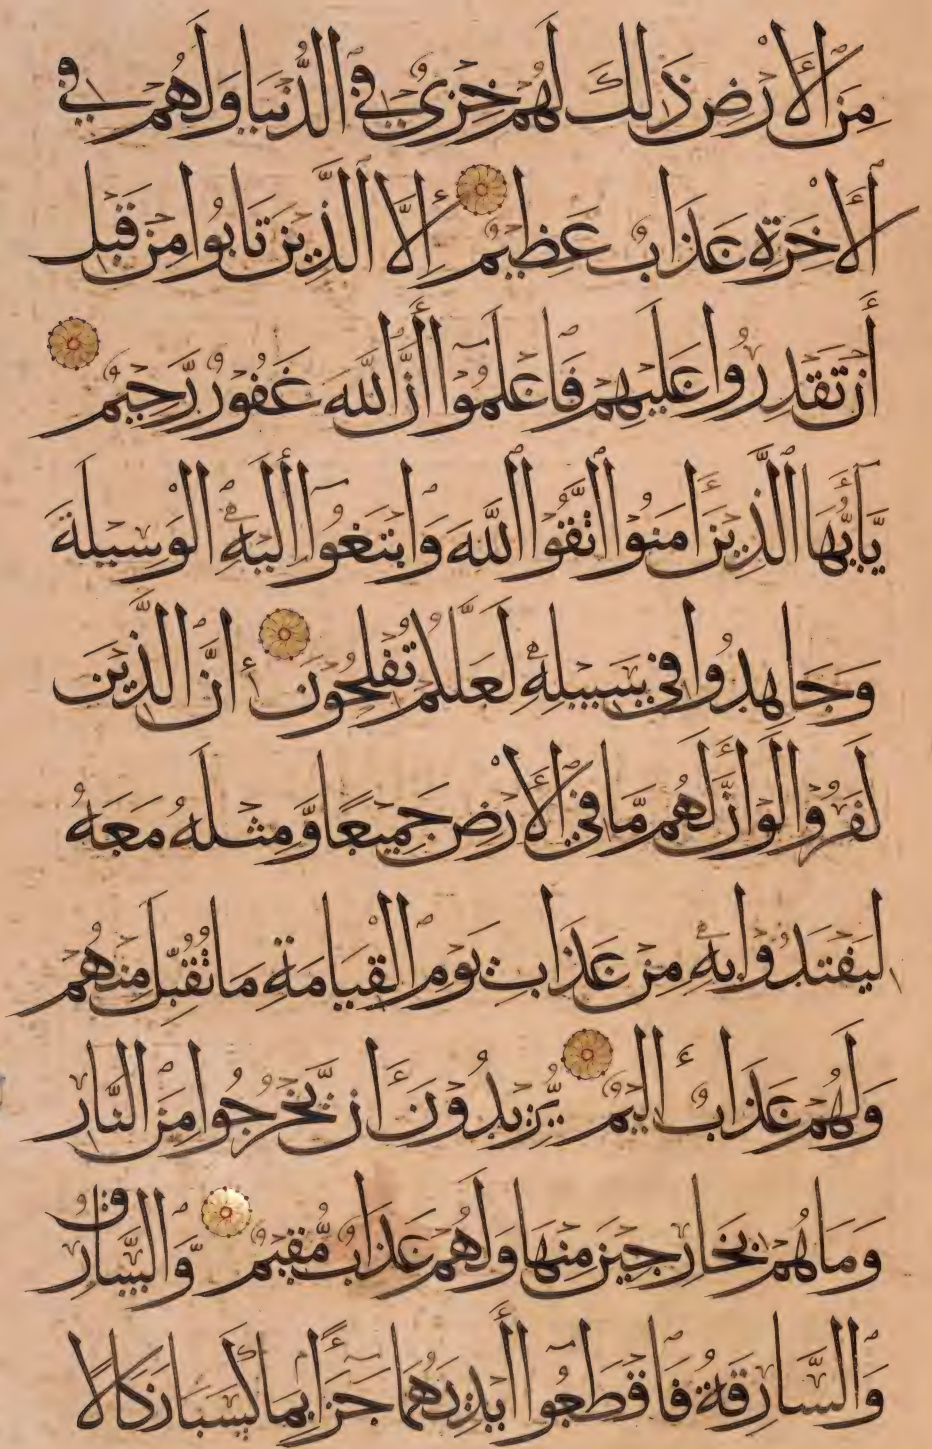 مِنَ الْأَرْضِ ذَٰلِكَ لَهُمْ خِزْيٌ فِي الدُّنْيَا وَلَهُمْ فِي
الْأَخِرَةِ عَذَابٌ عَظِيمٌ إِلَّا الَّذِينَ تَابُوا مِنْ قَبْلِ
أَنْ تَقْدِرُوا عَلَيْهِمْ فَاعْلَمُوا أَنَّ اللَّهَ غَفُورٌ رَّحِيمٌ
يَا أَيُّهَا الَّذِينَ اٰمَنُوا اتَّقُوا اللَّهَ وَابْتَغُوا إِلَيْهِ الْوَسِيلَةَ
وَجَاهِدُوا فِي سَبِيلِهِ لَعَلَّكُمْ تُفْلِحُونَ إِنَّ الَّذِينَ
كَفَرُوا لَوْ أَنَّ لَهُمْ مَّا فِي الْأَرْضِ جَمِيعًا وَّمِثْلَهُ مَعَهُ
لِيَفْتَدُوا بِهِ مِنْ عَذَابِ يَوْمِ الْقِيَامَةِ مَا تُقُبِّلَ مِنْهُمْ
وَلَهُمْ عَذَابٌ أَلِيمٌ يُّرِيدُونَ أَنْ يَّخْرُجُوا مِنَ النَّارِ
وَمَا هُمْ بِخَارِجِينَ مِنْهَا وَلَهُمْ عَذَابٌ مُّقِيمٌ وَّالسَّارِقُ
وَالسَّارِقَةُ فَاقْطَعُوا أَيْدِيَهُمَا جَزَاءً بِمَا كَسَبَا نَكَالًا